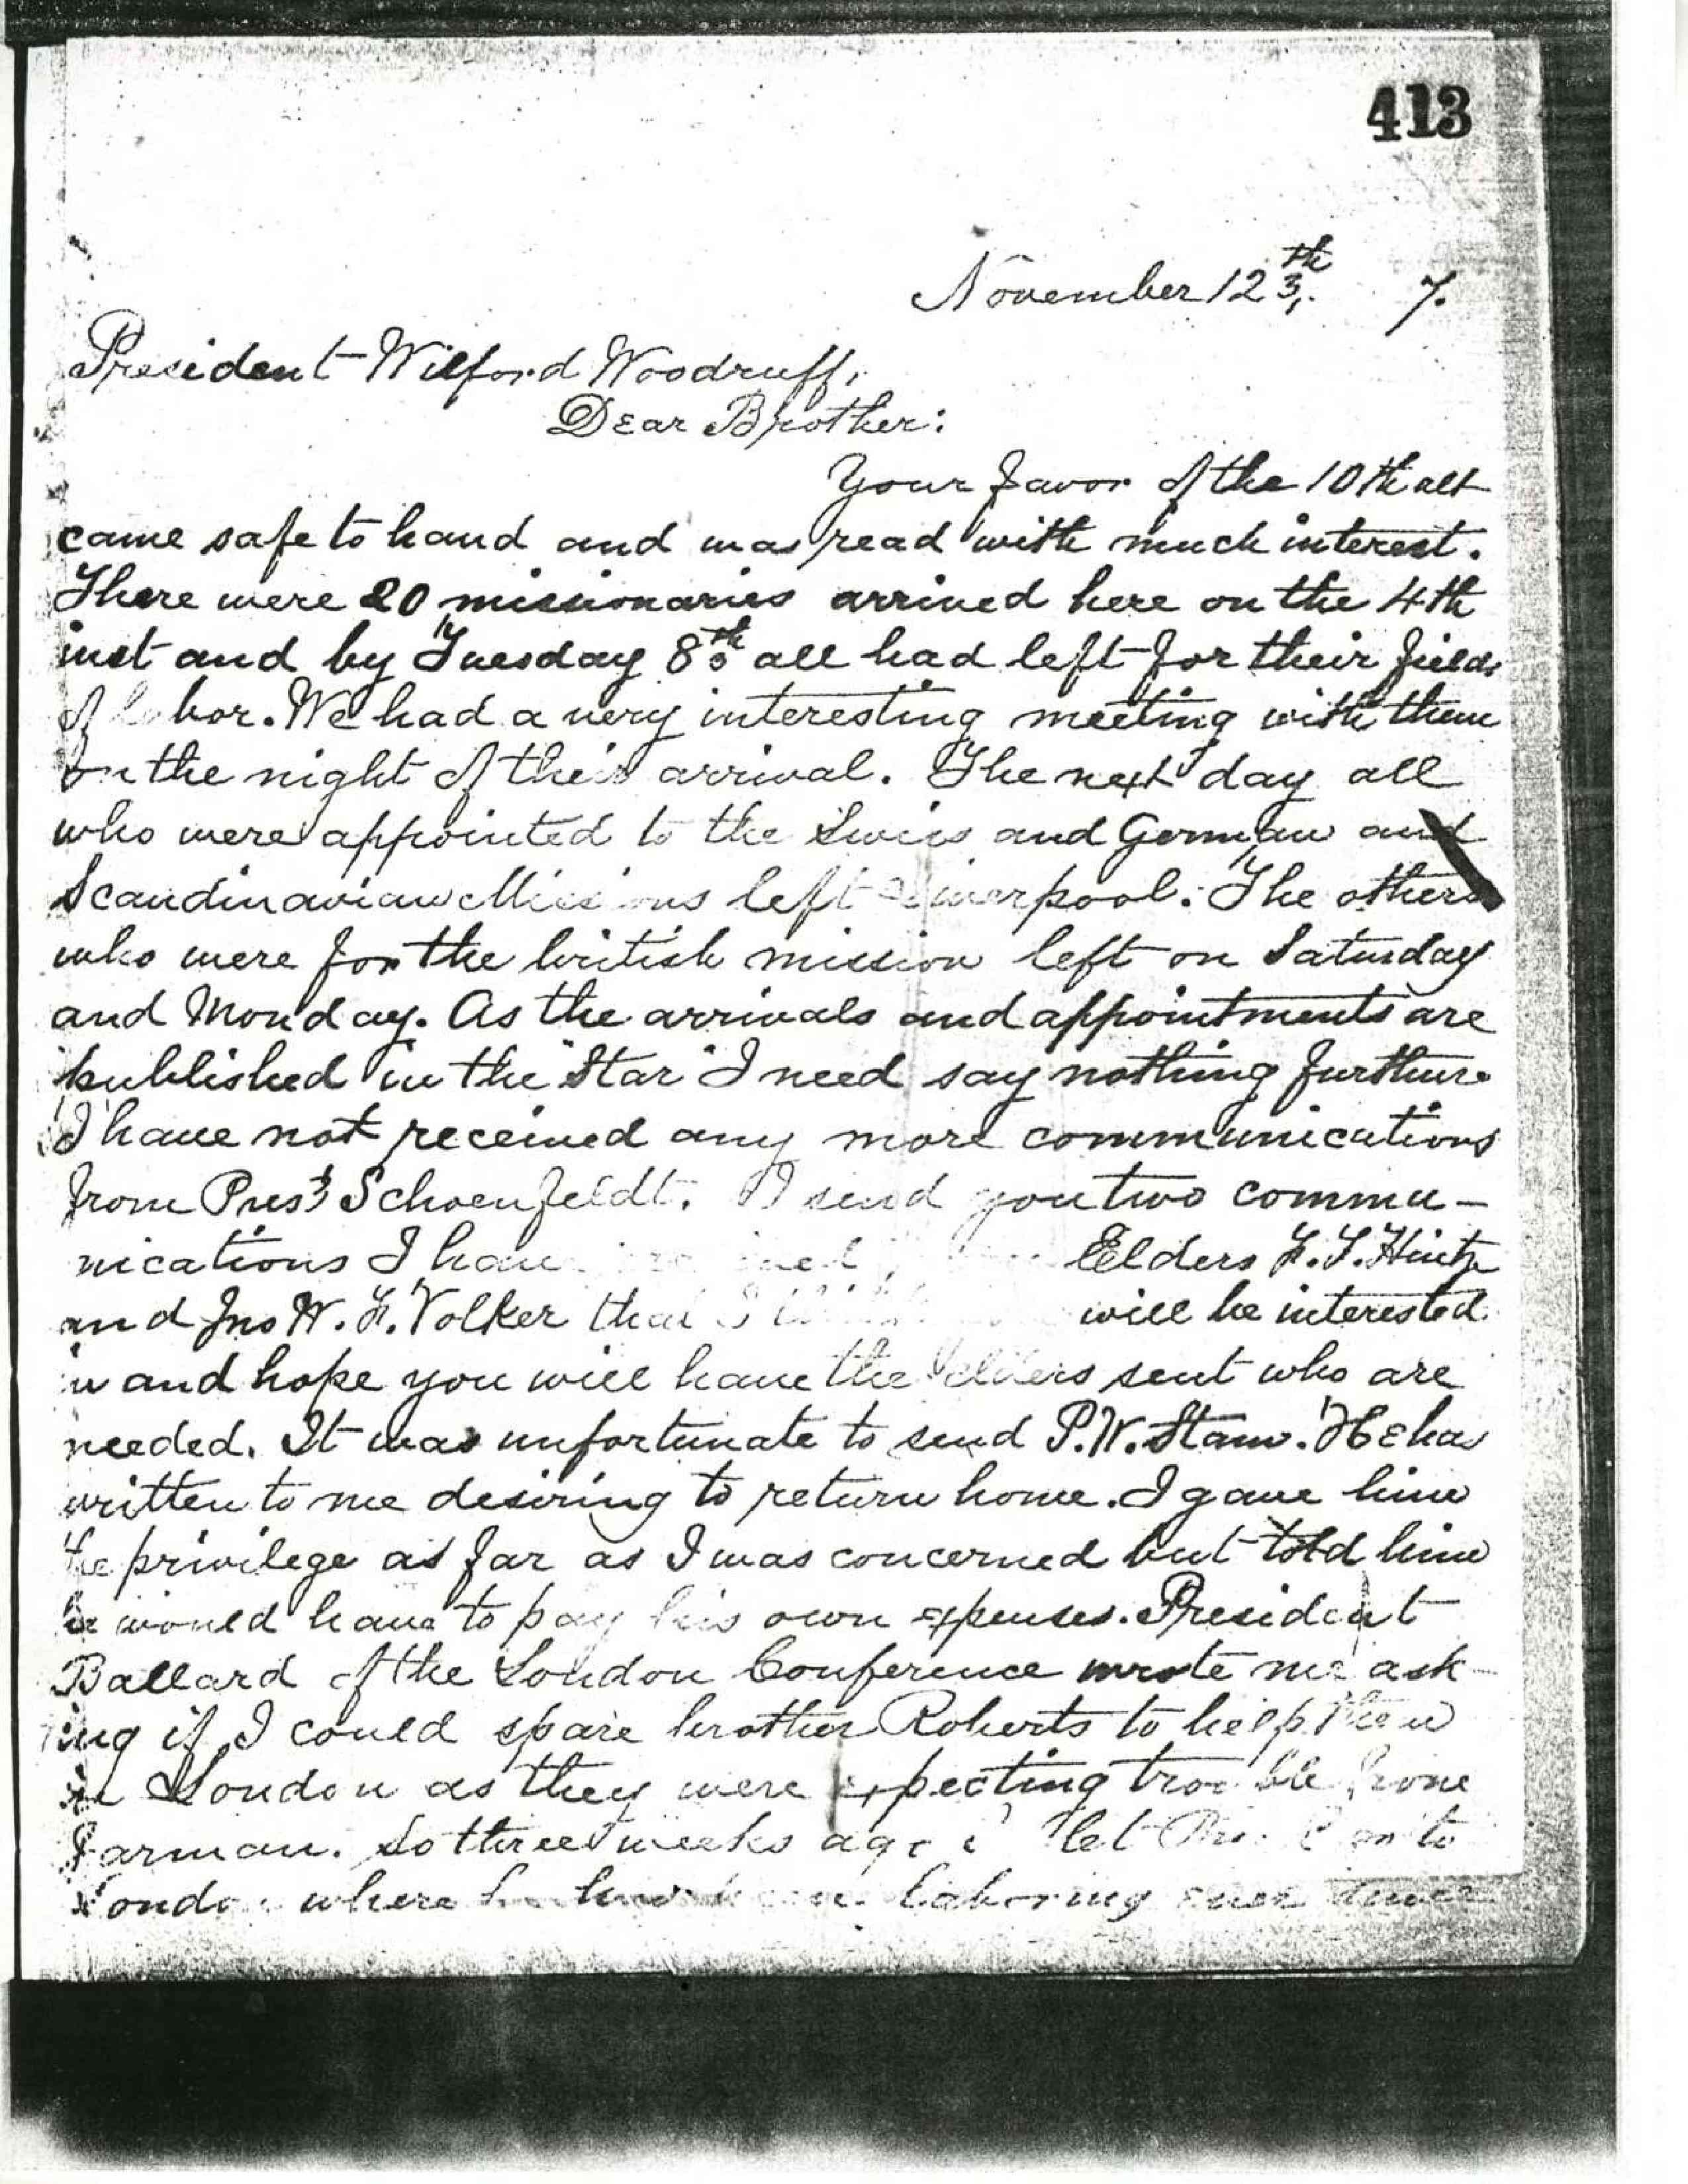 413
November 12th 7.
President Wilford Woodruff,
Dear Brother:
Your favor of the 10th ult
came safe to hand and was read with much interest.
There were 20 missionaries arrived here on the 4th
inst and by Tuesday 8th all had left for their fields
of labor. We had a very interesting meeting with them
on the night of their arrival. The next day all
who were appointed to the Swiss and German and
Scandinavian Missions left Liverpool. The others
who were for the british mission left on Saturday
and Monday. As the arrivals and appointments are
published in the "Star" I need say nothing further.
I have not received any more communications
from Prest Schoenfeldt. I send you two commu-
nications I have Elders F.F. Hintze
and Jno W. F. Volker that I will be interested
in and hope you will have the elders sent who are
needed. It was unfortunate to send P.W. Stam. He has
written to me desiring to return home. I gave him
the privilege as far as I was concerned but told him
he would have to pay his own expenses. President
Ballard of the London Conference wrote me ask-
ing if I could spare brother Roberts to help them
in London as they were expecting trouble from
Jarman. So three weeks ago I let to
London where laboring ever since